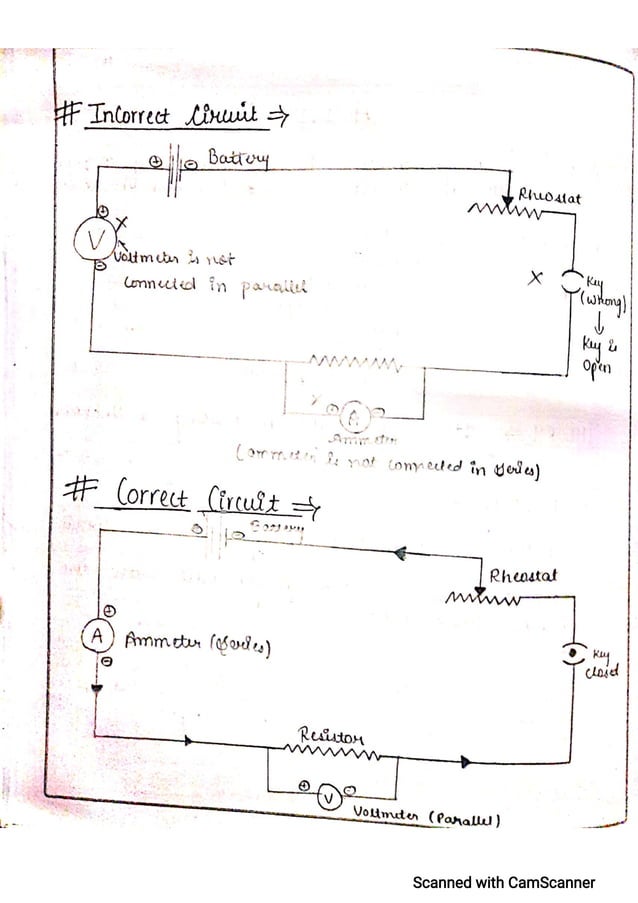 # Incorrect Circuit ⇒
⊕ ⊖ Battery
Rheostat
⊕
X
V
Voltmeter is not
connected in parallel
⊖
X
Key
(Wrong)
↓
Key is
Open
⊕ A ⊖
Ammeter
(Ammeter is not connected in series)
# Correct Circuit ⇒
⊕ ⊖ Battery
Rheostat
⊕
A
Ammeter (Series)
⊖
Key
closed
Resistor
⊕ V ⊖
Voltmeter (Parallel)
Scanned with CamScanner